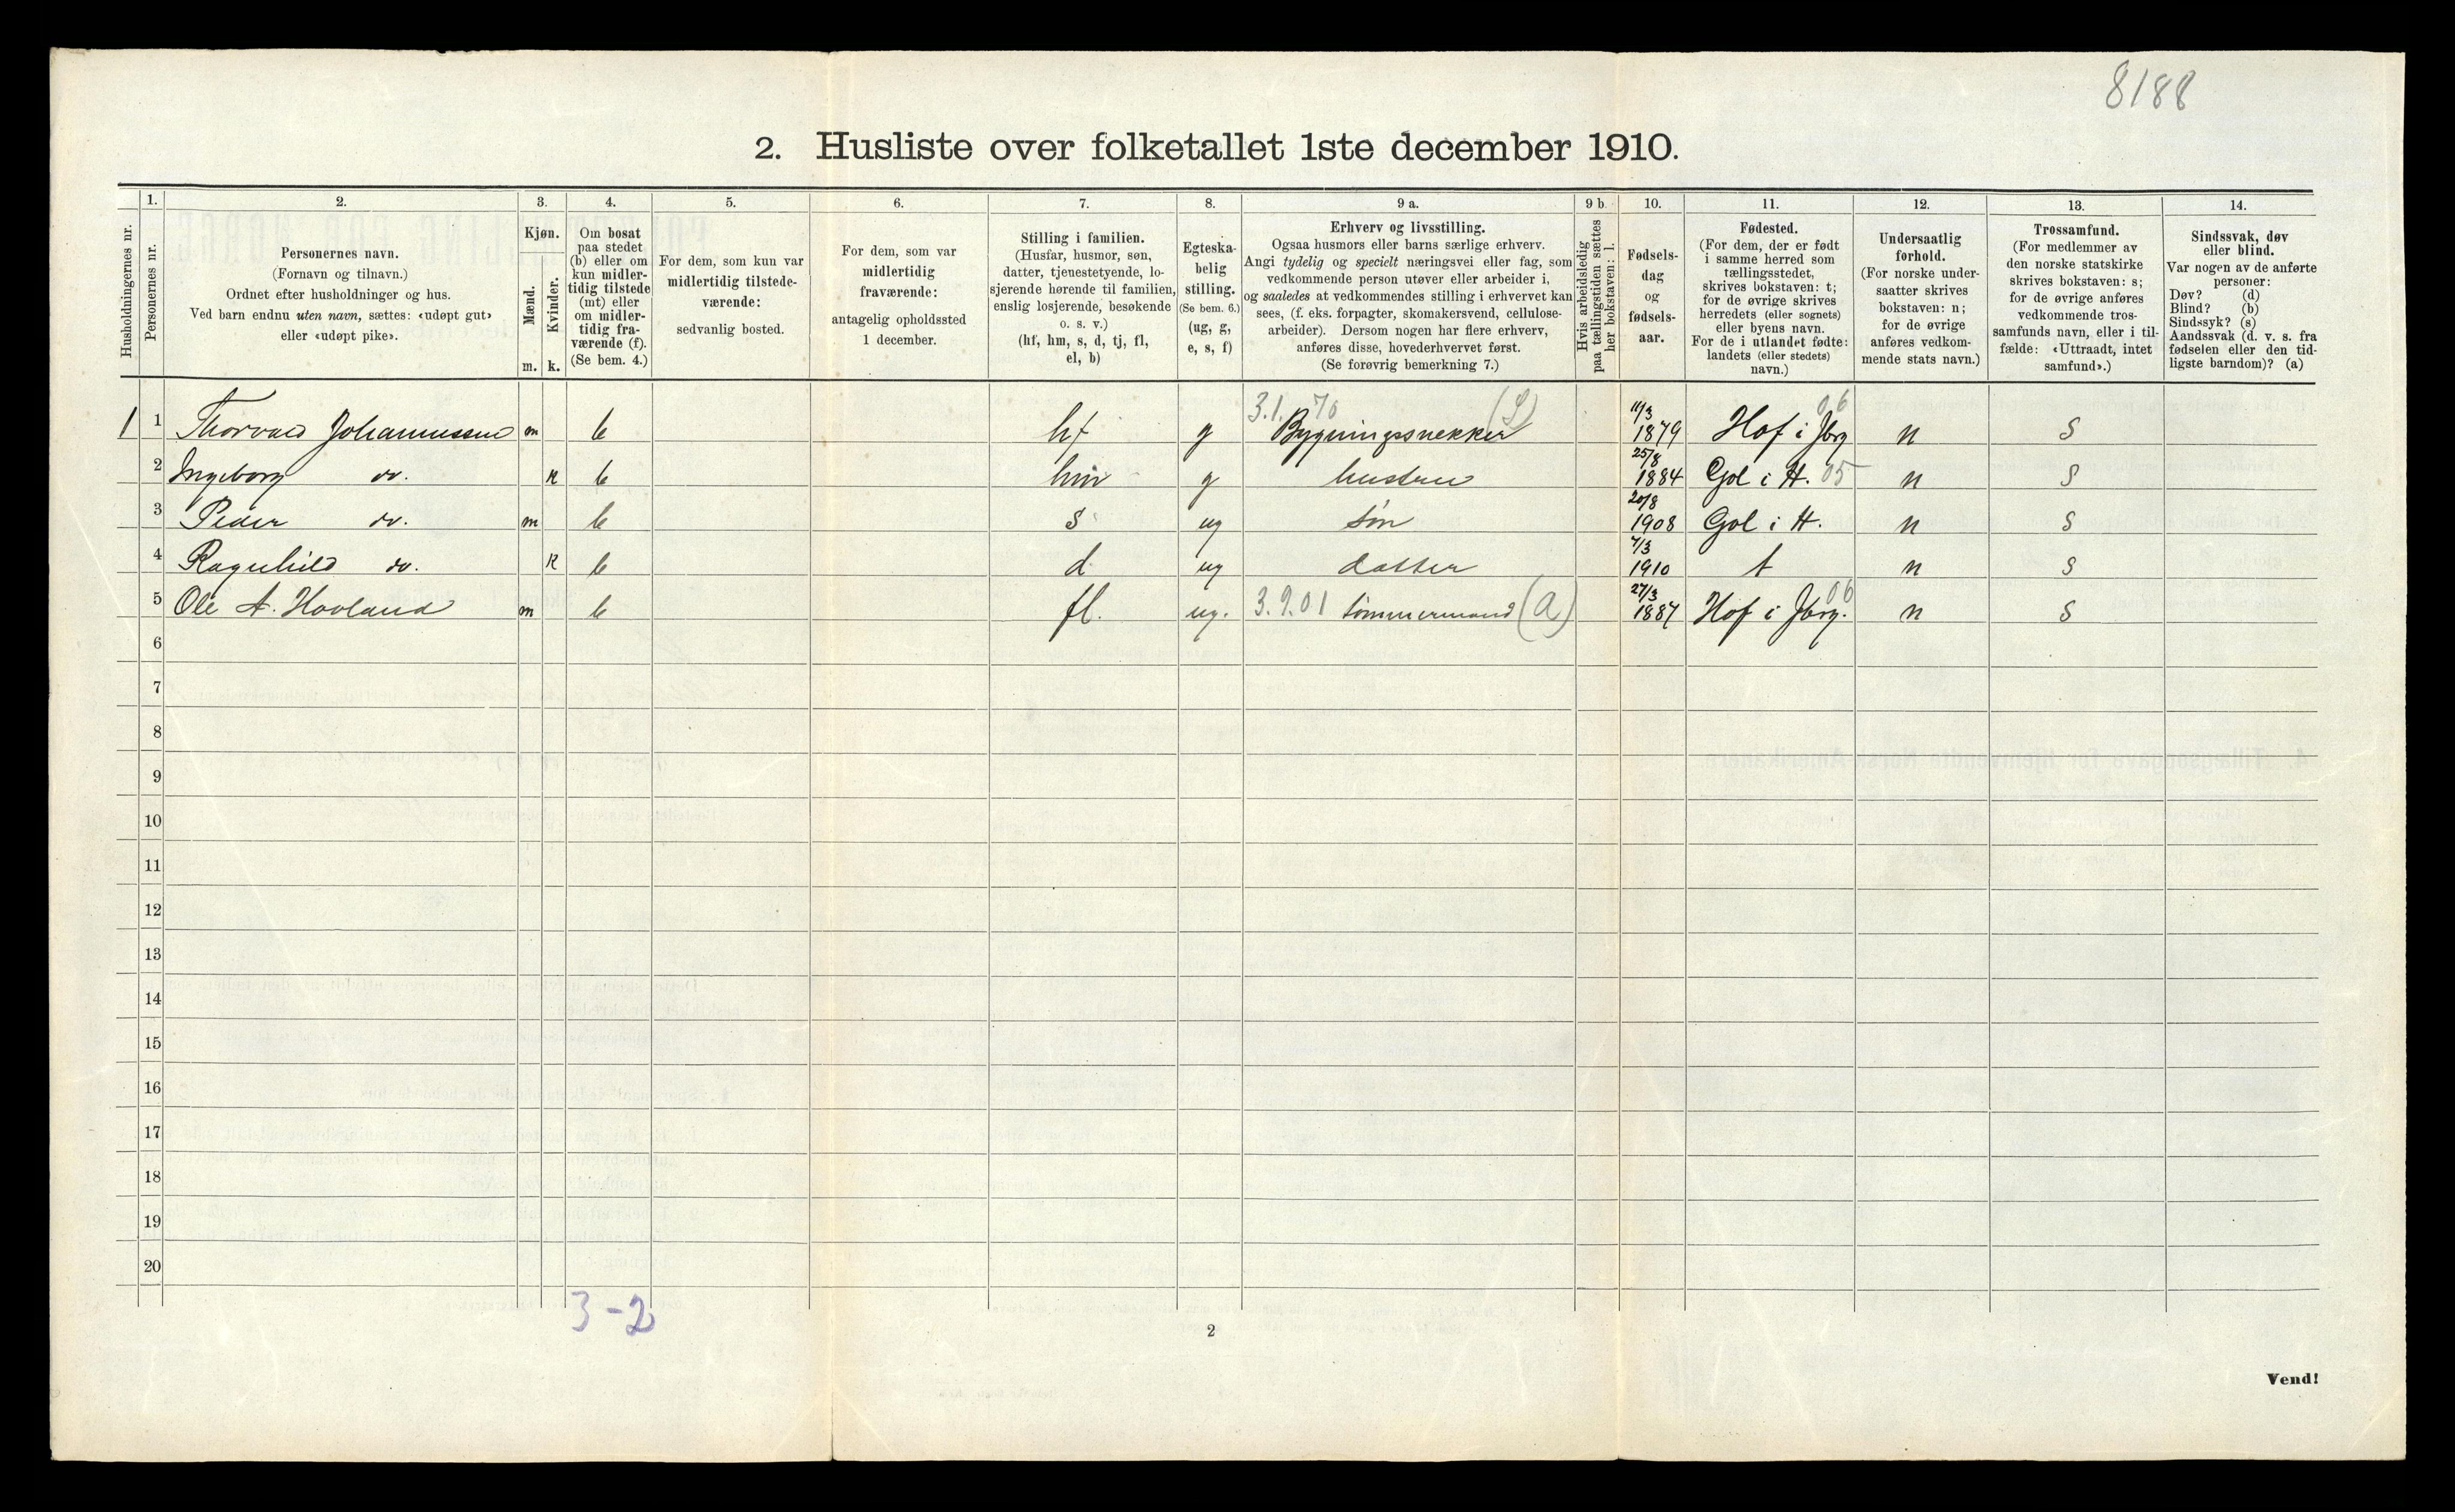 8188
2. Husliste over folketallet 1ste december 1910.
Husholdningernes nr.
1.
Personernes nr.
2.
Personernes navn.
(Fornavn og tilnavn.)
Ordnet efter husholdninger og hus.
Ved barn endnu uten navn, sættes: «udøpt gut»
eller «udøpt pike».
3.
Kjøn.
Mænd.
Kvinder.
m. k.
4.
Om bosat
paa stedet
(b) eller om
kun midler-
tidig tilstede
(mt) eller
om midler-
tidig fra-
værende (f).
(Se bem. 4.)
5.
For dem, som kun var
midlertidig tilstede-
værende:
sedvanlig bosted.
6.
For dem, som var
midlertidig
fraværende:
antagelig opholdssted
1 december.
7.
Stilling i familien.
(Husfar, husmor, søn,
datter, tjenestetyende, lo-
sjerende hørende til familien,
enslig losjerende, besøkende
o. s. v.)
(hf, hm, s, d, tj, fl,
el, b)
8.
Egteska-
belig
stilling.
(Se bem. 6.)
(ug, g,
e, s, f)
9 a.
Erhverv og livsstilling.
Ogsaa husmors eller barns særlige erhverv.
Angi tydelig og specielt næringsvei eller fag, som
vedkommende person utøver eller arbeider i,
og saaledes at vedkommendes stilling i erhvervet kan
sees, (f. eks. forpagter, skomakersvend, cellulose-
arbeider). Dersom nogen har flere erhverv,
anføres disse, hovederhvervet først.
(Se forøvrig bemerkning 7.)
9 b.
Hvis arbeidsledig
paa tællingstiden sættes
her bokstaven: l.
10.
Fødsels-
dag
og
fødsels-
aar.
11.
Fødested.
(For dem, der er født
i samme herred som
tællingsstedet,
skrives bokstaven: t;
for de øvrige skrives
herredets (eller sognets)
eller byens navn.
For de i utlandet fødte:
landets (eller stedets)
navn.)
12.
Undersaatlig
forhold.
(For norske under-
saatter skrives
bokstaven: n;
for de øvrige
anføres vedkom-
mende stats navn.)
13.
Trossamfund.
(For medlemmer av
den norske statskirke
skrives bokstaven: s;
for de øvrige anføres
vedkommende tros-
samfunds navn, eller i til-
fælde: «Uttraadt, intet
samfund».)
14.
Sindssvak, døv
eller blind.
Var nogen av de anførte
personer:
Døv? (d)
Blind? (b)
Sindssyk? (s)
Aandssvak (d. v. s. fra
fødselen eller den tid-
ligste barndom)? (a)
1 1 Thorvald Johannussen m b hf g 3.1.70 Bygningssnekker (S) 11/3 1879 Hof i Jbrg 06 n s
2 Ingeborg do. k b hm g hustru 25/8 1884 Gol i H. 05 n s
3 Peder do. m b s ug søn 20/8 1908 Gol i H. n s
4 Ragnhild do. k b d ug datter 7/3 1910 t n s
5 Ole A. Hovland m b fl. ug. 3.9.01 tømmermand (a) 27/3 1887 Hof i Jbrg. 06 n s
6
7
8
9
10
11
12
13
14
15
16
17
18
19
20
3-2
2
Vend!